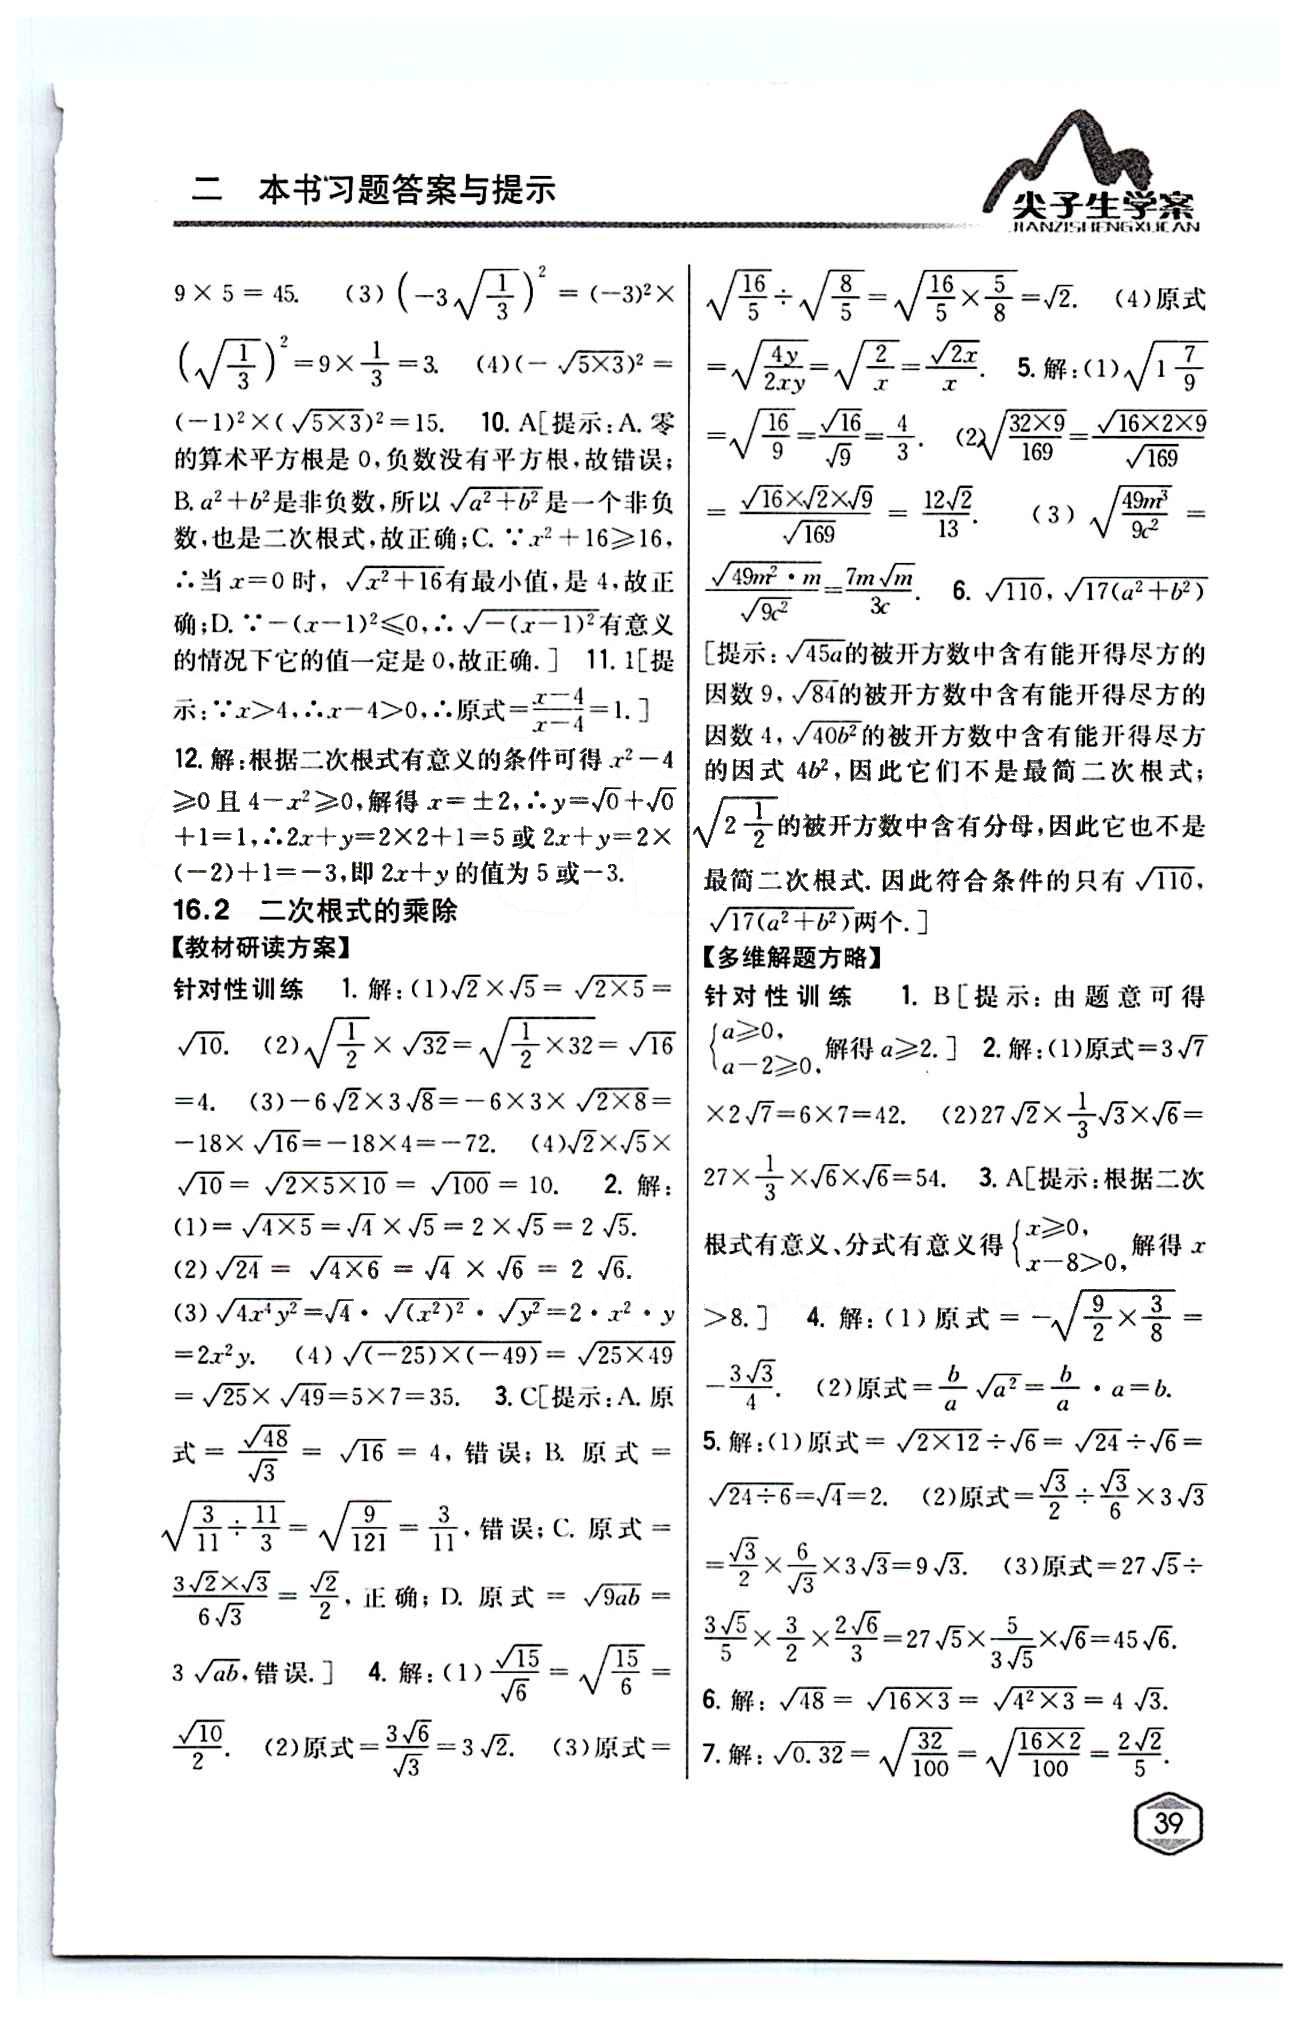 二 本书习题答案与提示
尖子生学案
JIANZISHENGXUEAN
9×5=45. (3)(-3√(1/3))²=(-3)²×
(√(1/3))²=9×1/3=3. (4)(-√(5×3))²=
(-1)²×(√(5×3))²=15. 10. A[提示:A. 零
的算术平方根是 0,负数没有平方根,故错误;
B. a²+b²是非负数,所以√(a²+b²)是一个非负
数,也是二次根式,故正确;C. ∵x²+16≥16,
∴当 x=0 时, √(x²+16)有最小值,是 4,故正
确;D. ∵-(x-1)²≤0,∴√(-(x-1)²)有意义
的情况下它的值一定是 0,故正确.] 11. 1[提
示:∵x>4,∴x-4>0,∴原式=(x-4)/(x-4)=1.]
12. 解:根据二次根式有意义的条件可得 x²-4
≥0 且 4-x²≥0,解得 x=±2,∴y=√0+√0
+1=1,∴2x+y=2×2+1=5 或 2x+y=2×
(-2)+1=-3,即 2x+y 的值为 5 或-3.
16.2 二次根式的乘除
【教材研读方案】
针对性训练 1. 解:(1)√2×√5=√(2×5)=
√10. (2)√(1/2)×√32=√(1/2×32)=√16
=4. (3)-6√2×3√8=-6×3×√(2×8)=
-18×√16=-18×4=-72. (4)√2×√5×
√10=√(2×5×10)=√100=10. 2. 解:
(1)=√(4×5)=√4×√5=2×√5=2√5.
(2)√24=√(4×6)=√4×√6=2√6.
(3)√(4x⁴y²)=√4·√((x²)²)·√(y²)=2·x²·y
=2x²y. (4)√((-25)×(-49))=√(25×49)
=√25×√49=5×7=35. 3. C[提示:A. 原
式=√48/√3=√16=4,错误;B. 原式=
√(3/11÷11/3)=√(9/121)=3/11,错误;C. 原式=
(3√2×√3)/(6√3)=√2/2,正确;D. 原式=√(9ab)=
3√(ab),错误.] 4. 解:(1)√15/√6=√(15/6)=
√10/2. (2)原式=3√6/√3=3√2. (3)原式=
√(16/5)÷√(8/5)=√(16/5×5/8)=√2. (4)原式
=√(4y/2xy)=√(2/x)=√(2x)/x. 5. 解:(1)√(1 7/9)
=√(16/9)=√16/√9=4/3. (2)√((32×9)/169)=√(16×2×9)/√169
=(√16×√2×√9)/√169=12√2/13. (3)√(49m³/9c²)=
√(49m²·m)/√(9c²)=7m√m/3c. 6. √110,√(17(a²+b²))
[提示:√(45a)的被开方数中含有能开得尽方的
因数 9,√84的被开方数中含有能开得尽方的
因数 4,√(40b²)的被开方数中含有能开得尽方
的因式 4b²,因此它们不是最简二次根式;
√(2 1/2)的被开方数中含有分母,因此它也不是
最简二次根式. 因此符合条件的只有√110,
√(17(a²+b²))两个.]
【多维解题方略】
针对性训练 1. B[提示:由题意可得
{a≥0, a-2≥0, 解得 a≥2.] 2. 解:(1)原式=3√7
×2√7=6×7=42. (2)27√2×1/3√3×√6=
27×1/3×√6×√6=54. 3. A[提示:根据二次
根式有意义、分式有意义得{x≥0, x-8>0, 解得 x
>8.] 4. 解:(1)原式=-√(9/2×3/8)=
-3√3/4. (2)原式=b/a√(a²)=b/a·a=b.
5. 解:(1)原式=√(2×12)÷√6=√24÷√6=
√(24÷6)=√4=2. (2)原式=√3/2÷√3/6×3√3
=√3/2×6/√3×3√3=9√3. (3)原式=27√5÷
3√5/5×3/2×2√6/3=27√5×5/(3√5)×√6=45√6.
6. 解:√48=√(16×3)=√(4²×3)=4√3.
7. 解:√0.32=√(32/100)=√((16×2)/100)=2√2/5.
39